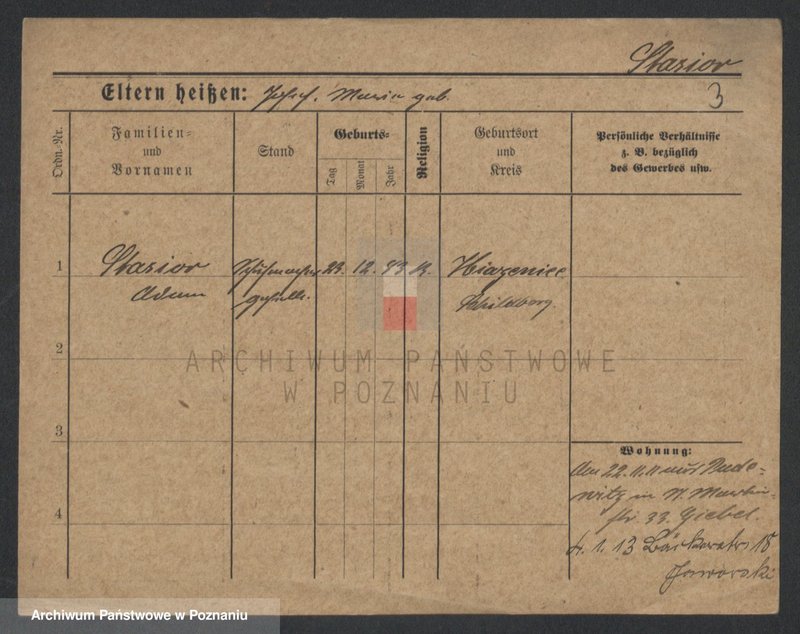 Stasior
3
Eltern heißen: Josef. Maria geb.
Ordn.-Nr.
Familien-
und
Vornamen
Stand
Geburts-
Tag
Monat
Jahr
Religion
Geburtsort
und
Kreis
Persönliche Verhältnisse
z. B. bezüglich
des Gewerbes usw.
1
Stasior
Adam
Schuhmacher
geselle.
23. 12. 83 k.
Schildberg.
2
ARCHIWUM PAŃSTWOWE
W POZNANIU
3
Wohnung:
Am 22.11.11 aus
in St. Martin-
str. 33. Giebel.
4
4. 1. 13 Bäckerstr 18
Jaworski
Archiwum Państwowe w Poznaniu